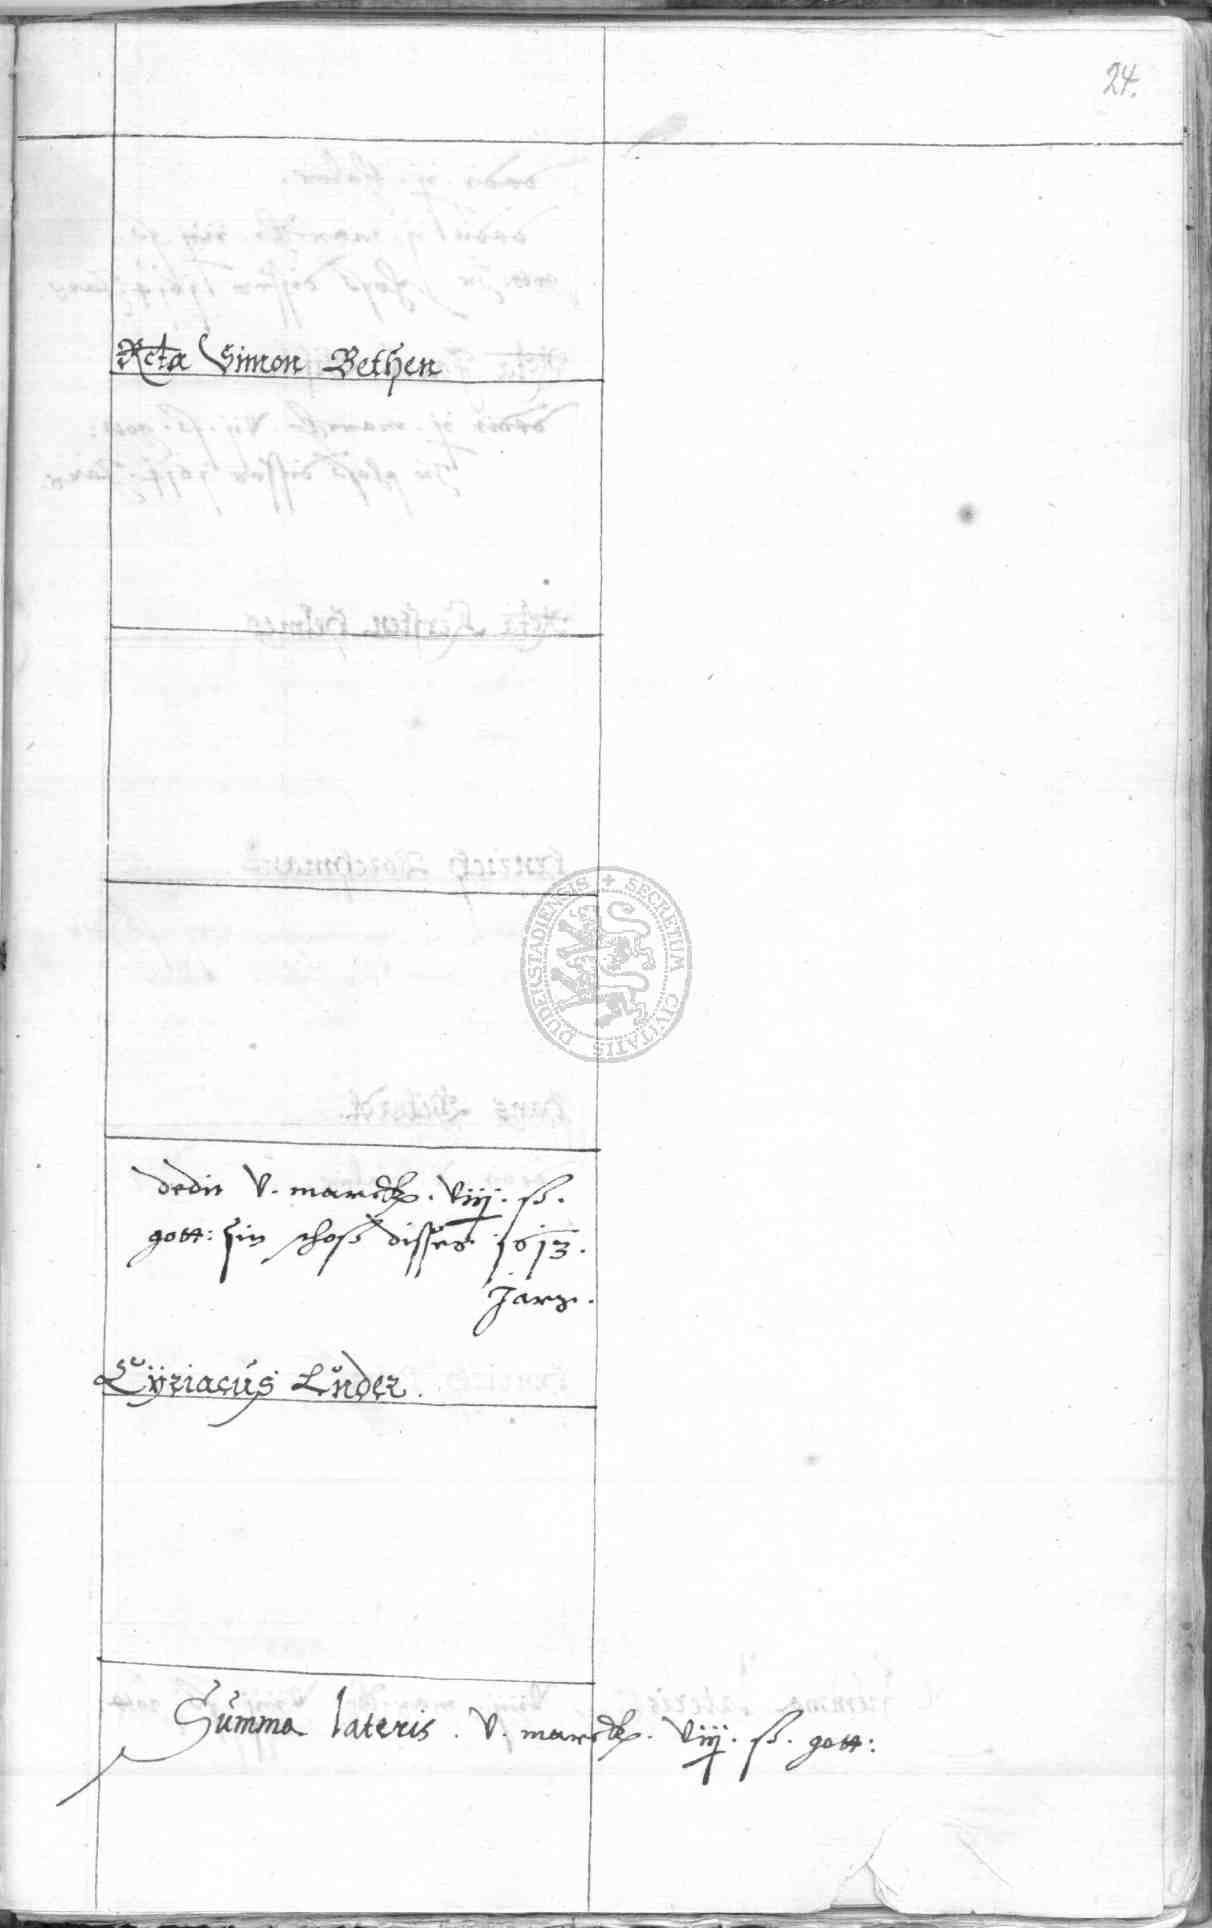 24.
Rcta Simon Bethen
dedit v. marck. viij. ß.
gott: zin schoss disses 1613.
Jarz.
Cÿriacus Lüder.
Summa lateris. v. marck. viij. ß. gott:
SECRETUM CIVITATIS DUDERSTADIENSIS